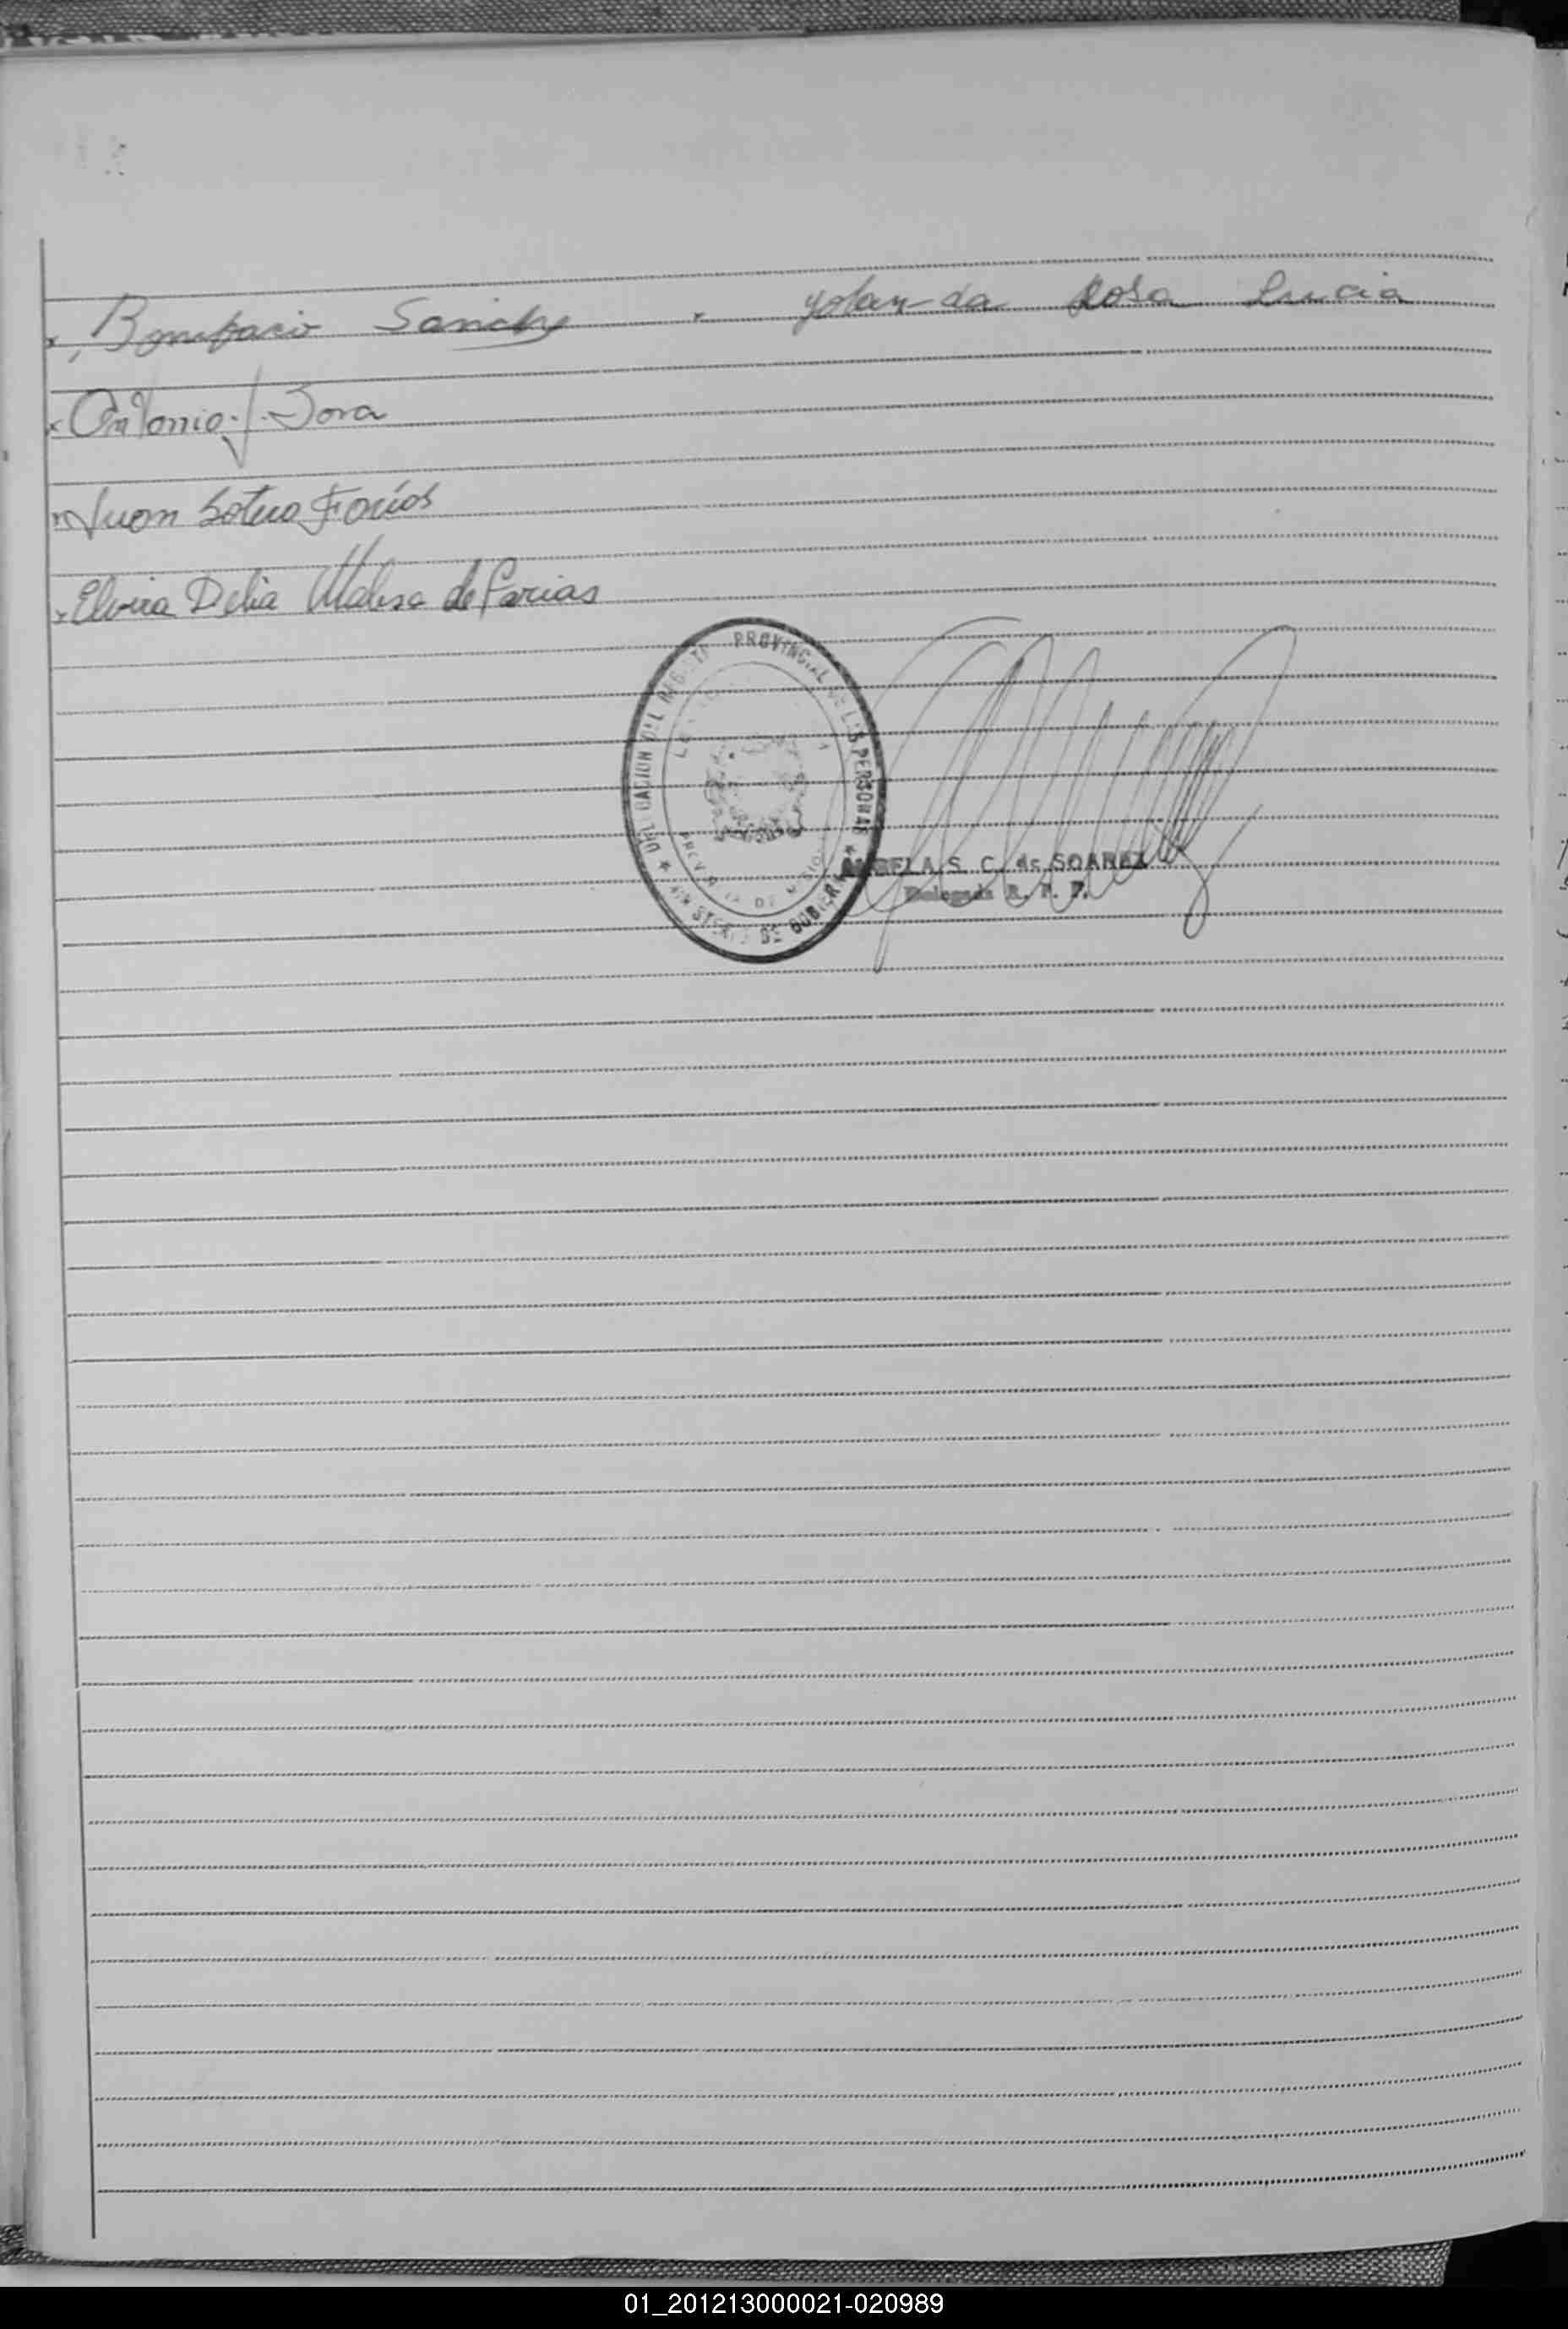 x Bonifacio Sanchez x Yolanda Rosa Lucia
x Antonio J. Sora
x Juan Sotero Farias
x Elvira Delia de Farias
DELEGACION DEL REGISTRO PROVINCIAL DE LAS PERSONAS
★ MINISTERIO DE GOBIERNO ★
PROVINCIA DE MISIONES
ANGELA S. C. de SOAREZ
Delegada R. P. P.
01_201213000021-020989